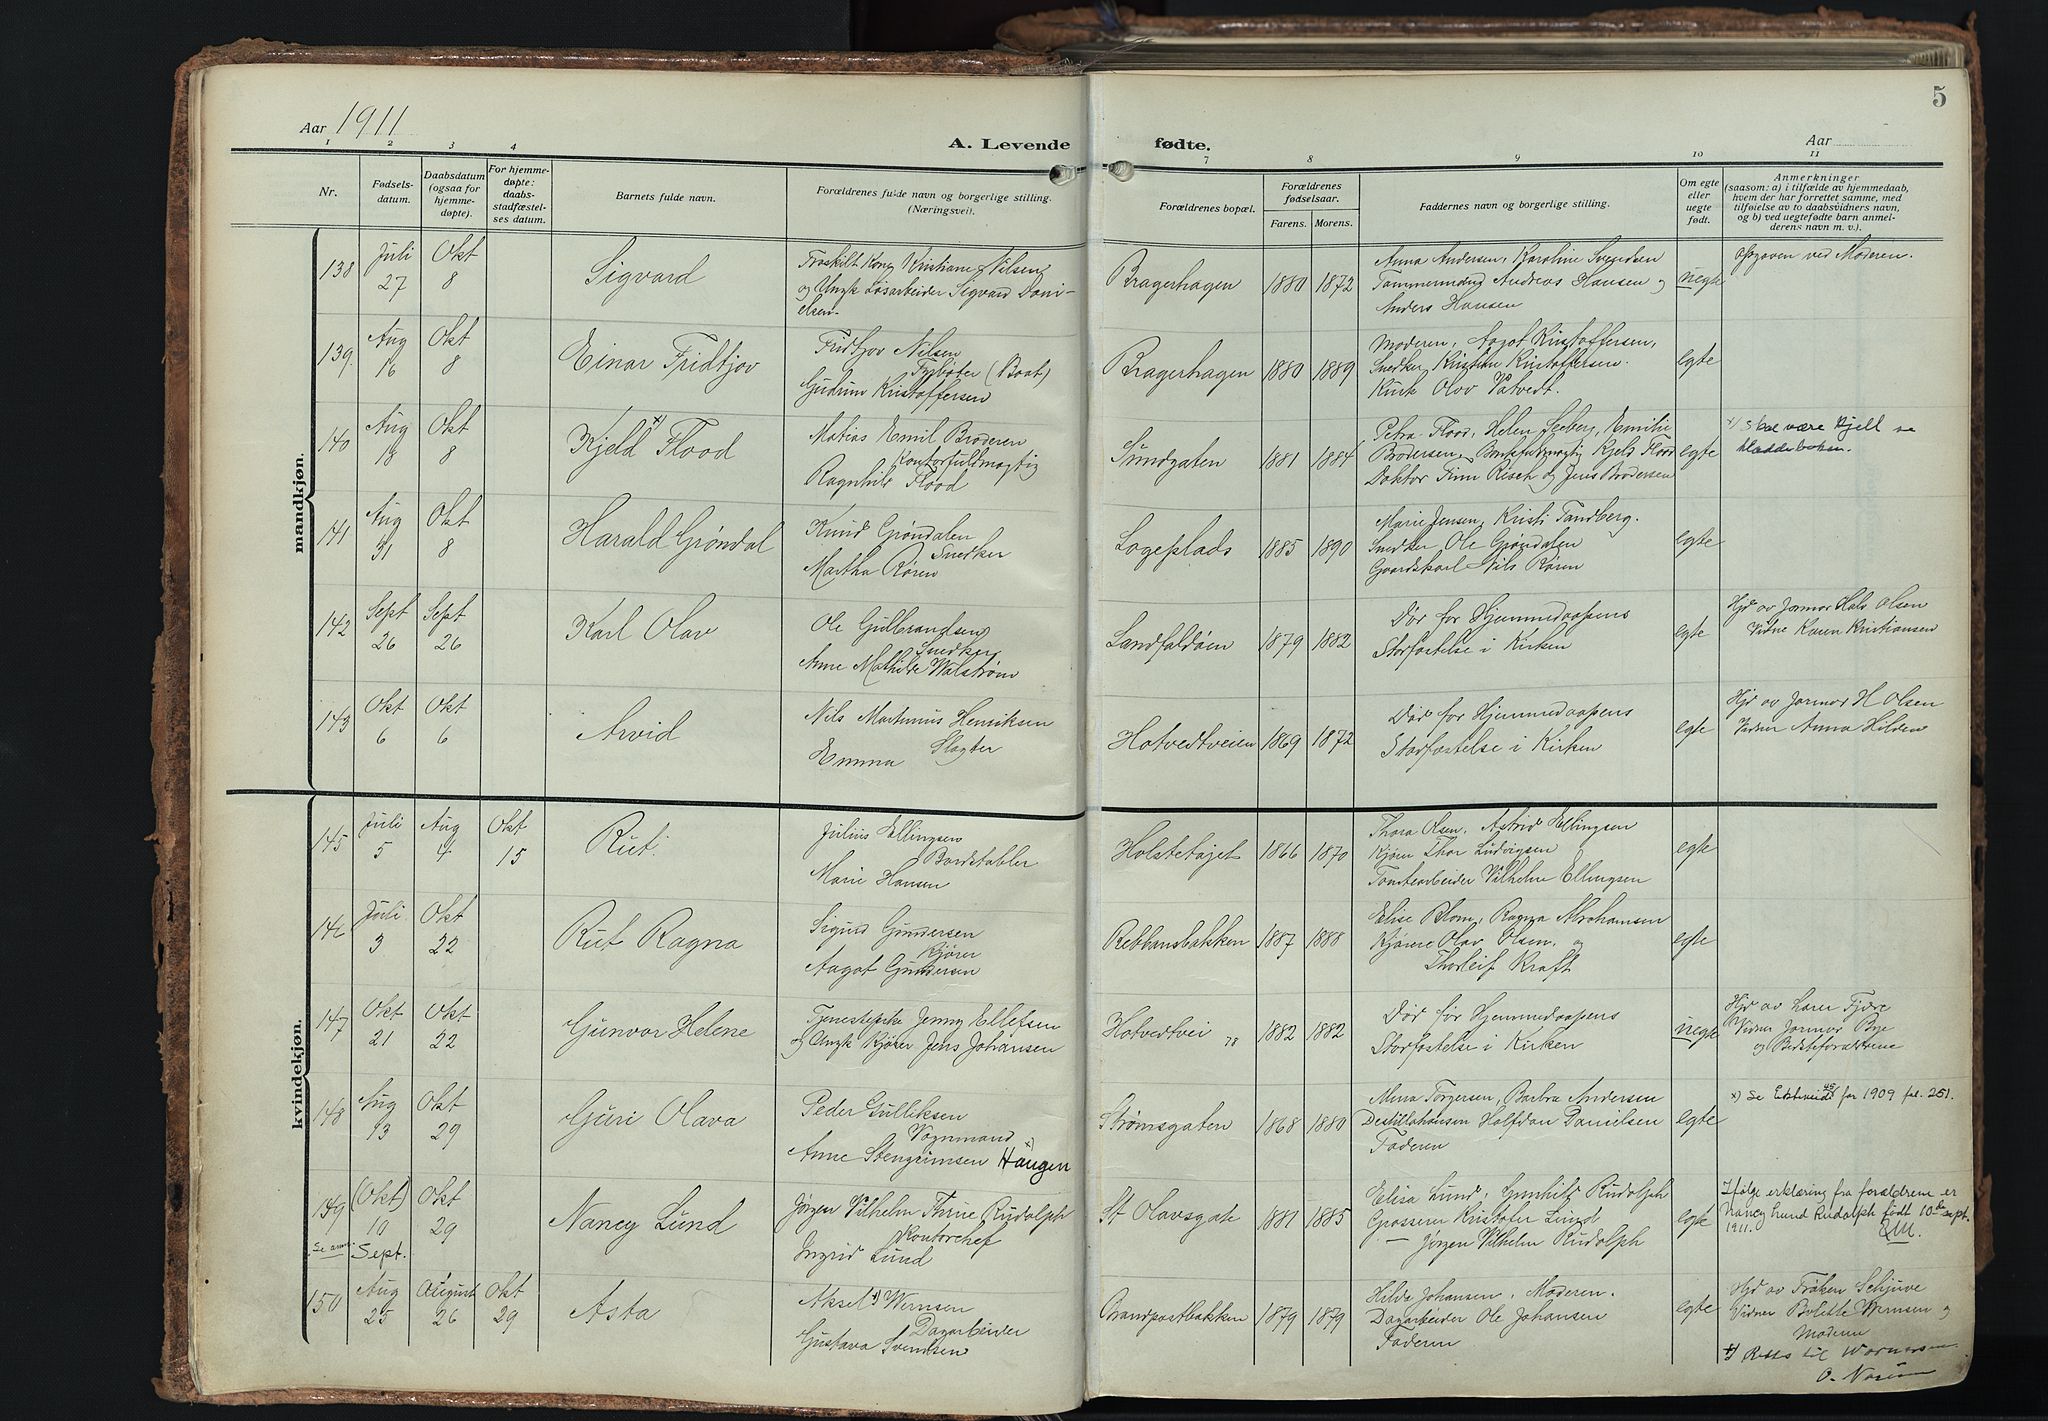 5
Aar 1911
A. Levende fødte.
Aar
1 2 3 4 7 8 9 10 11
Nr.
Fødsels-
datum.
Daabsdatum
(ogsaa for
hjemme-
døpte).
For hjemme-
døpte:
daabs-
stadfæstel-
ses datum.
Barnets fulde navn.
Forældrenes fulde navn og borgerlige stilling.
(Næringsvei).
Forældrenes bopæl.
Forældrenes
fødselsaar.
Farens. Morens.
Faddernes navn og borgerlige stilling.
Om egte
eller
uegte
født.
Anmerkninger
(saasom: a) i tilfælde av hjemmedaab,
hvem der har forrettet samme, med
tilføielse av to daabsvidners navn,
og b) ved uegtefødte barn anmel-
derens navn m. v.).
mandkjøn.
138
Juli
27
Okt
8
Sigvard
Fraskilt Kone Kristiane Nilsen
og Ungk Løsarbeider Sigvard Dani-
elsen.
Bragerhagen
1880 1872
Anna Andersen, Karoline Svendsen
Tømmermand Andreas Hansen og
Anders Hansen
uegte
Opgaven ved Moderen.
139
Aug
16
Okt
8
Einar Fridtjov
Fridtjov Nilsen
Fyrbøter (Baat)
Gudrun Kristoffersen
Bragerhagen
1880 1889
Moderen, Aagot Kristoffersen,
Snedker Kristian Kristoffersen.
Kusk Olav Vatvedt.
egte
140
Aug
13
Okt
8
Kjeld x) Flood
Matias Emil Brodersen
Kontorfuldmægtig
Ragnhild Flood
Sundgaten
1881 1884
Petra Flood, Helen Seeberg, Emilie
Brodersen, Kjeld Flood
Doktor Finn Risch og Jens Brodersen
egte
x) Skal være Kjell se
kladdeboken.
141
Aug
31
Okt
8
Harald Grøndal
Knud Grøndalen
Snedker
Martha Røren
Logeplads
1885 1890
Marie Jensen, Kristi Tandberg.
Snedker Ole Grøndalen
Gaardskarl Nils Røren
egte
142
Sept
26
Sept
26
Karl Olav
Ole Gulbrandsen
Snedker
Anne Mathilde Walstrøm
Landfaldøen
1879 1882
Død før Hjemmedaapens
Stadfæstelse i Kirken
egte
Hjd av Jormor Hals Olsen
Vidne Karen Kristiansen
143
Okt
6
Okt
6
Arvid
Nils Martinus Henriksen
Slagter
Emma
Hotvedtveien
1869 1872
Død før Hjemmedaapens
Stadfæstelse i Kirken
egte
Hjd av Jormor H Olsen
Vidner Anna Hilden
kvindekjøn.
145
Juli
5
Aug
4
Okt
15
Rut.
Julius Ellingsen
Bordstabler
Marie Hansen
Holstetøjet
1866 1870
Thora Olsen, Astrid Ellingsen
Kjører Thor Ludvigsen og
Tomtearbeider Vilhelm Ellingsen
egte
146
Juli
3
Okt
22
Rut Ragna
Sigurd Gundersen
Kjører
Aagot Gundersen
Bethansbakken
1887 1888
Elise Blom, Ragna Abrahamsen
Kjører Olav Olsen. og
Thorleif Kraft
egte
147
Okt
21
Okt
22
Gunvor Helene
Tjenestepike Jenny Ellefsen
og Ungk Kjører Jens Johansen
Hotvedtvei 78
1882 1882
Død før Hjemmedaapens
Stadfæstelse i Kirken
uegte
Hjd av Lærer Fjære
Vidner Jormor Bye
og Bedsteforældrene
148
Aug
13
Okt
29
Guri Olava
Peder Gulliksen
Vognmand
Anne Stengrimsen Haugen x)
Strømsgaten
1868 1880
Mina Torgersen, Barbra Andersen
Halfdan Danielsen
Faderen
egte
x) Se for 1909 fol. 251.
149
Se anm.
(Okt)
10
Sept.
Okt
29
Nancy Lund
Jørgen Vilhelm Thrine Rudolph
Kontorchef
Ingrid Lund
St Olavsgate
1881 1885
Elisa Lund, Gunhild Rudolph
Grosserer Kristofer Lund
— Jørgen Vilhelm Rudolph
egte
Ifølge erklæring fra forældrene er
Nancy Lund Rudolph født 10de sept.
1911.
QM.
150
Aug
25
August
26
Okt
29
Asta
Aksel x) Wernsen
Dagarbeider
Gustava Svendsen
Grandpostbakken
1879 1879
Hilda Johansen, Moderen.
Dagarbeider Ole Johansen
Faderen
egte
Hjd av Frøken Schjuve
Vidner Bolette Wernsen og
Moderen
x) Rettet til Warnersen